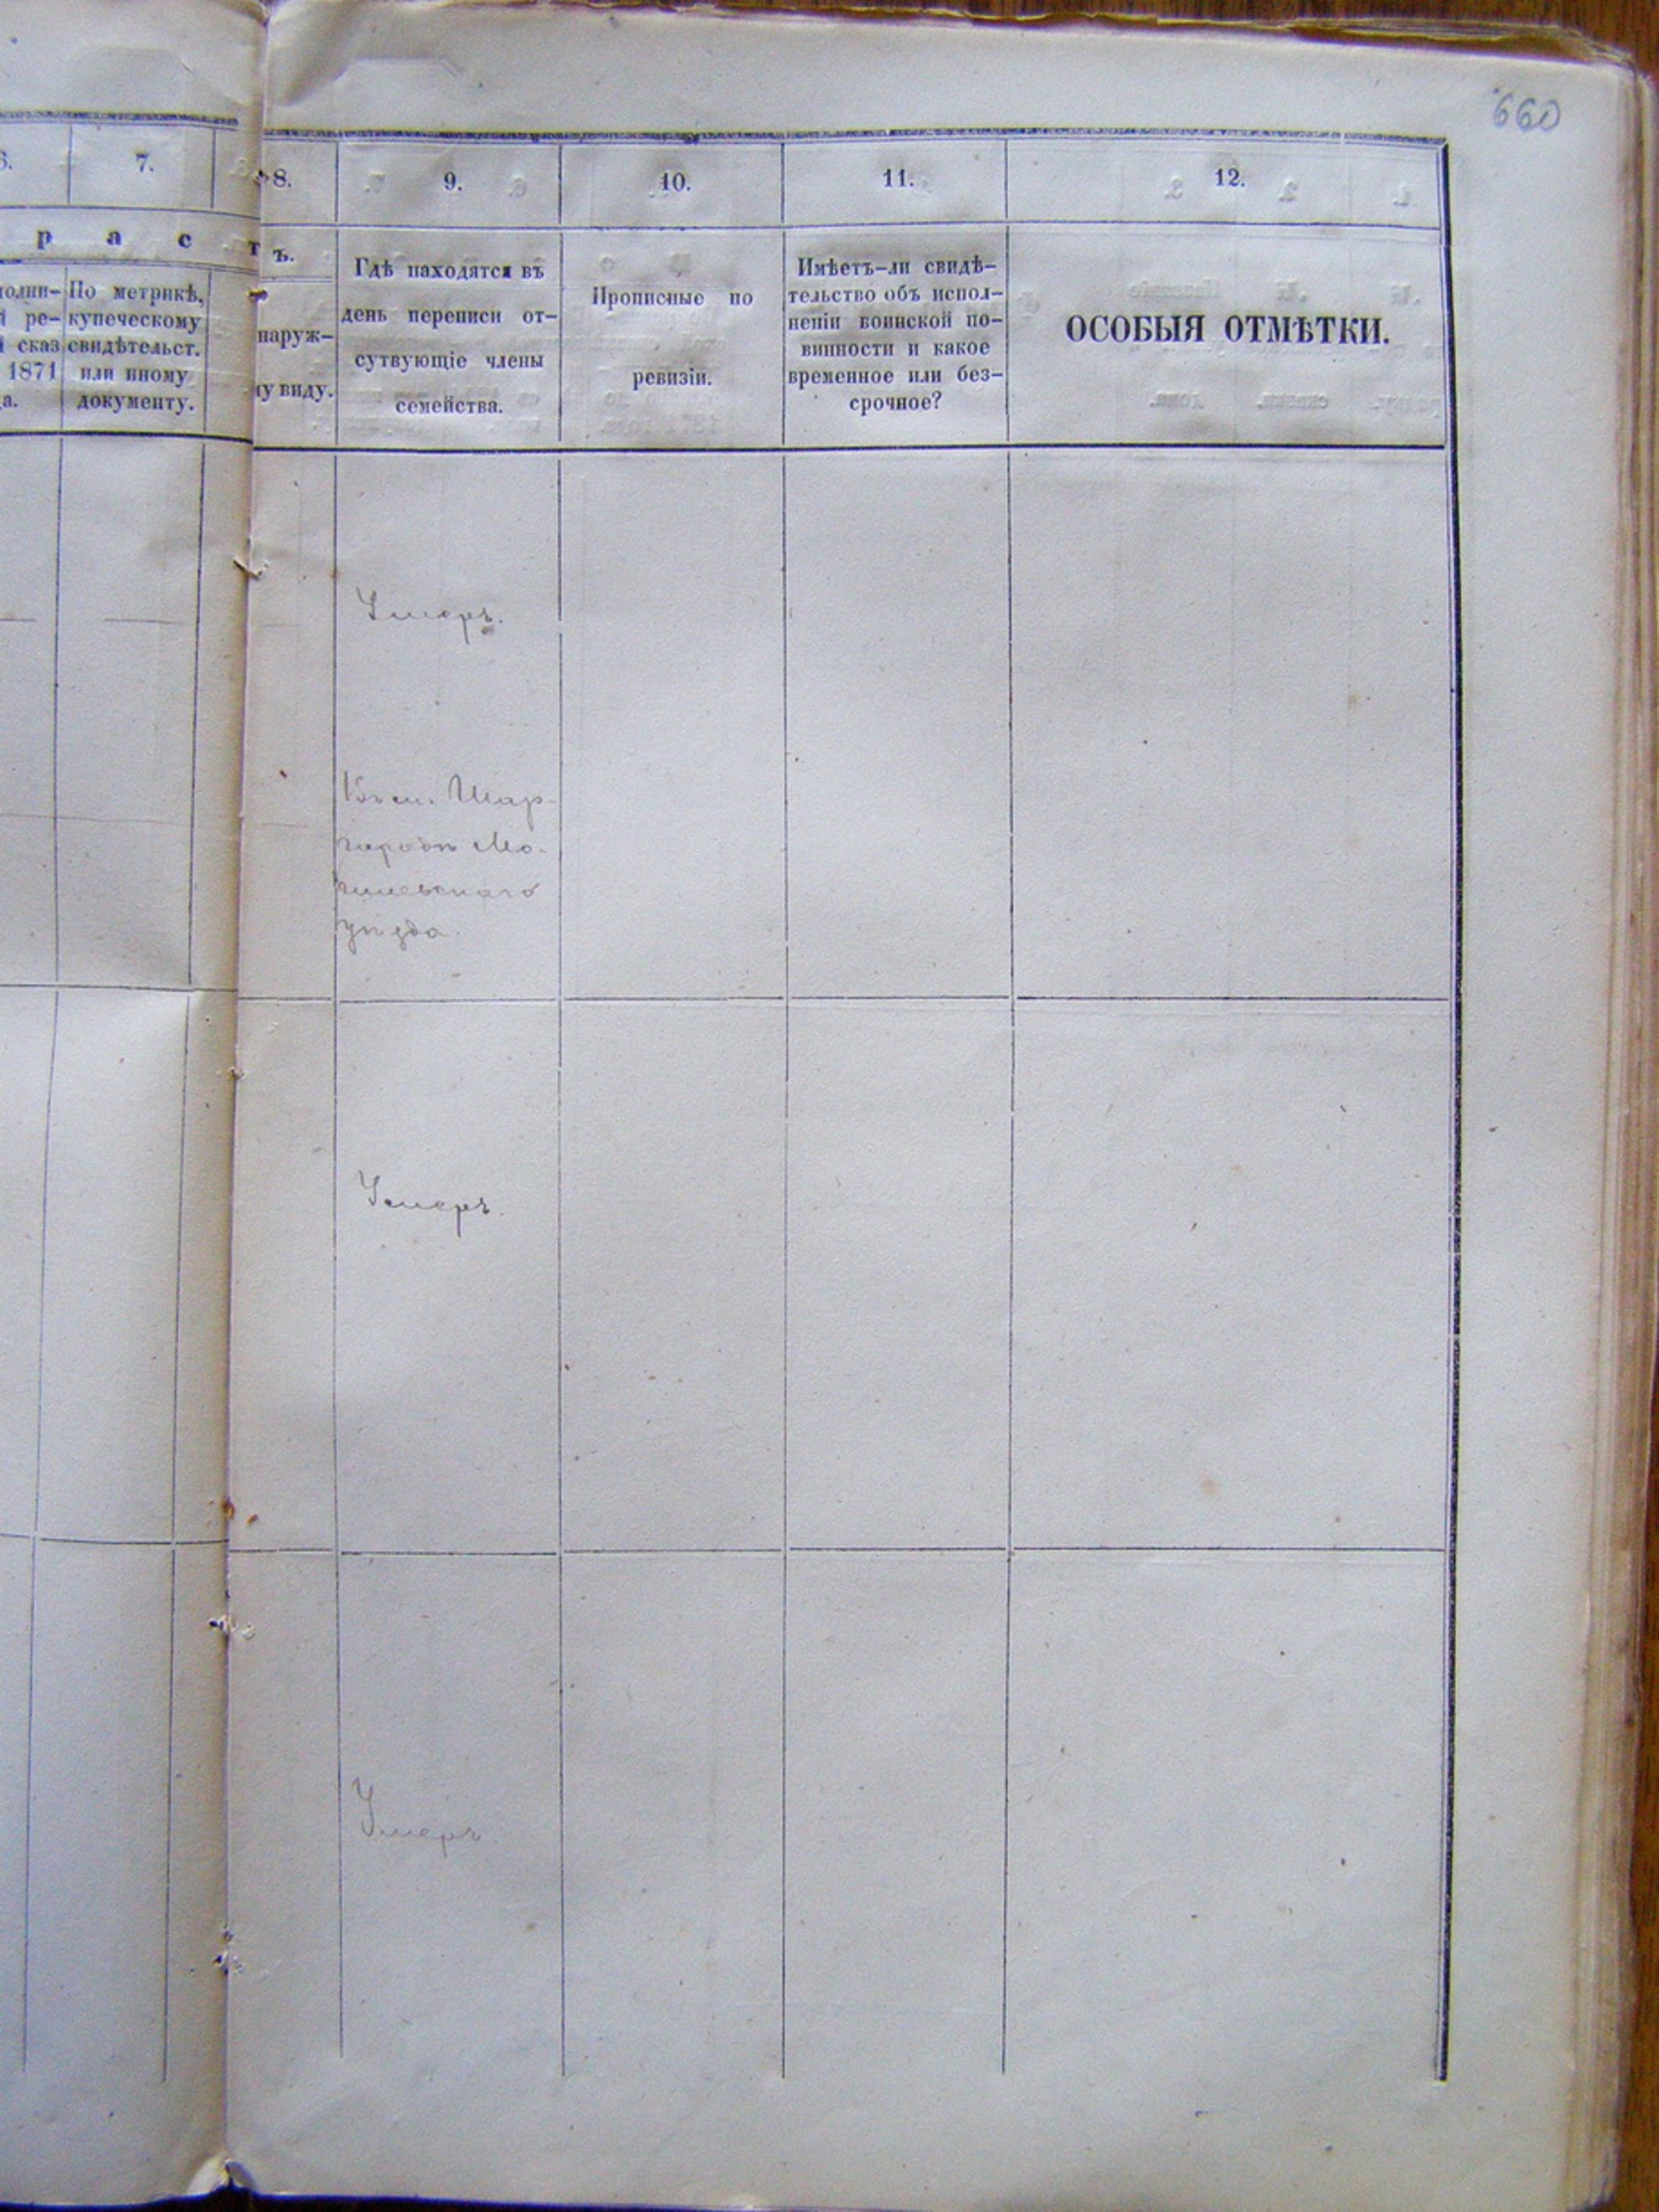 660
6.
7.
8.
9.
10.
11.
12.
р а с т
ъ.
полни-
й ре-
й сказ
1871
да.
По метрикѣ,
купеческому
свидѣтельст.
или иному
документу.
наруж-
му виду.
Гдѣ находятся въ
день переписи от-
сутвующіе члены
семейства.
Прописные по
ревизіи.
Имѣетъ-ли свидѣ-
тельство объ испол-
неніи воинской по-
винности и какое
временное или без-
срочное?
ОСОБЫЯ ОТМѢТКИ.
Умеръ.
Въ м. Шар-
городѣ Мо-
гилевскаго
уѣзда.
Умеръ.
Умеръ.